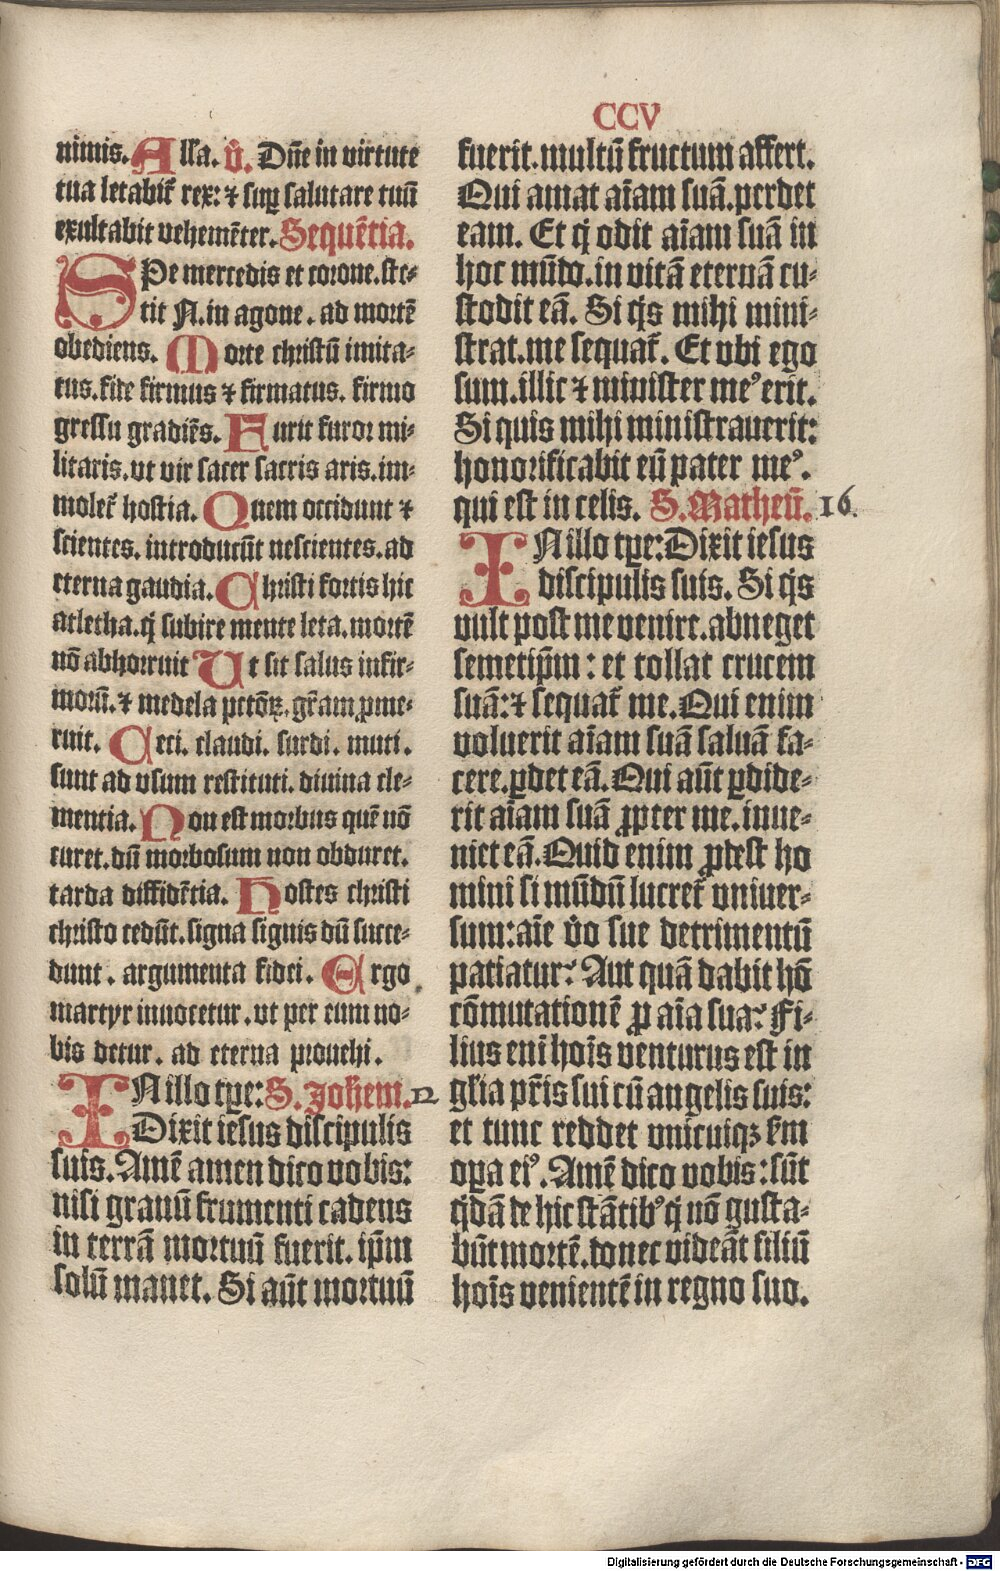 CCV
nimis. Alla. v̄. Dn̄e in virtute
tua letabit᷑ rex: ⁊ suꝑ salutare tuū
exultabit vehemēter. Sequētia.
SPe mercedis et corone. ste-
tit N. in agone. ad mortē
obediens. Morte christū imita-
tus. fide firmus ⁊ firmatus. firmo
gressu gradiēs. Furit furor mi-
litaris. vt vir sacer sacris aris. im-
molet᷑ hostia. Quem occidunt ⁊
scientes. introducūt nescientes. ad
eterna gaudia. Christi fortis hic
atletha. q̄ subire mente leta. mortē
nō abhorruit Ut sit salus infir-
morū. ⁊ medela pctōꝝ. gr̄am ꝓme-
ruit. Ceci. claudi. surdi. muti.
sunt ad vsum restituti. diuina cle-
mentia. Non est morbus quē nō
curet. dū morbosum non obduret.
tarda diffidētia. Hostes christi
christo cedūt. signa signis dū succe-
dunt. argumenta fidei. Ergo
martyr inuocetur. vt per eum no-
bis detur. ad eterna prouehi.
IN illo tꝑe: S. Johem. 12
Dixit iesus discipulis
suis. Amē amen dico vobis:
nisi granū frumenti cadens
in terrā mortuū fuerit. ip̄m
solū manet. Si aūt mortuū
fuerit. multū fructum affert.
Qui amat aīam suā. perdet
eam. Et q̇ odit aīam suā in
hoc mūdo. in vitā eternā cu-
stodit eā. Si q̇s mihi mini-
strat. me sequat᷑. Et vbi ego
sum. illic ⁊ minister meꝰ erit.
Si quis mihi ministrauerit:
honorificabit eū pater meꝰ.
qui est in celis. S. Matheū. 16.
IN illo tꝑe: Dixit iesus
discipulis suis. Si q̇s
vult post me venire. abneget
semetip̄m: et tollat crucem
suā: ⁊ sequat᷑ me. Qui enim
voluerit aīam suā saluā fa-
cere. ꝑdet eā. Qui aūt ꝑdide-
rit aīam suā ꝓpter me. inue-
niet eā. Quid enim ꝓdest ho
mini si mūdū lucret᷑ vniuer-
sum: aīe v̊o sue detrimentū
patiatur? Aut quā dabit hō
cōmutationē ꝓ aīa sua? Fi-
lius eni hoīs venturus est in
glīa pr̄is sui cū angelis suis:
et tunc reddet vnicuiqꝫ s̄m
oꝑa eiꝰ. Amē dico vobis: sūt
q̇dā de hic stātibꝰ q̇ nō gusta-
būt mortē. donec videāt filiū
hoīs venientē in regno suo.
Digitalisierung gefördert durch die Deutsche Forschungsgemeinschaft - DFG